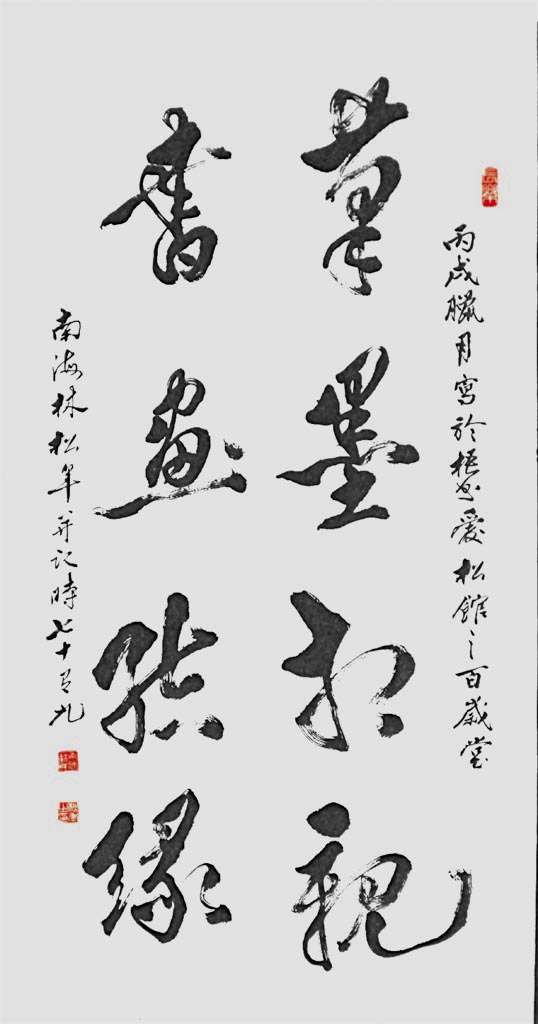 丙戌臘月寫於愛松館之百歲堂
筆墨相親
書畫結緣
南海林松年并記時七十有九